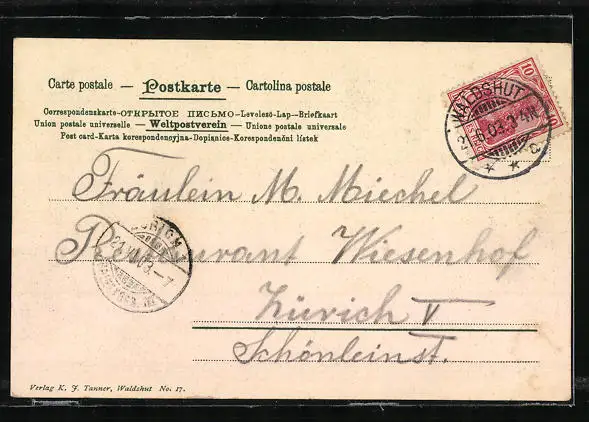 Carte postale — Postkarte — Cartolina postale
Correspondenskarte-ОТКРЫТОЕ ПИСЬМО-Levelező-Lap--Briefkaart
Union postale universelle — Weltpostverein — Unione postale universale
Post card-Karta korespondencyjna-Dopisnice-Korespondenční lístek
10
10
WALDSHUT
Fräulein M. Miechel
Restaurant Wiesenhof
Zürich V
Schönleinst.
ZÜRICH
Verlag K. F. Tanner, Waldshut No. 17.